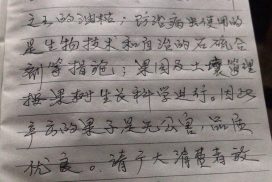 之王的油粒；防治病虫使用的
是生物技术和自治的石硫合
剂等措施；果园及土壤管理
按果树生长科学进行。因此
丰产的果子是无公害，品质
优良。请广大消费者放